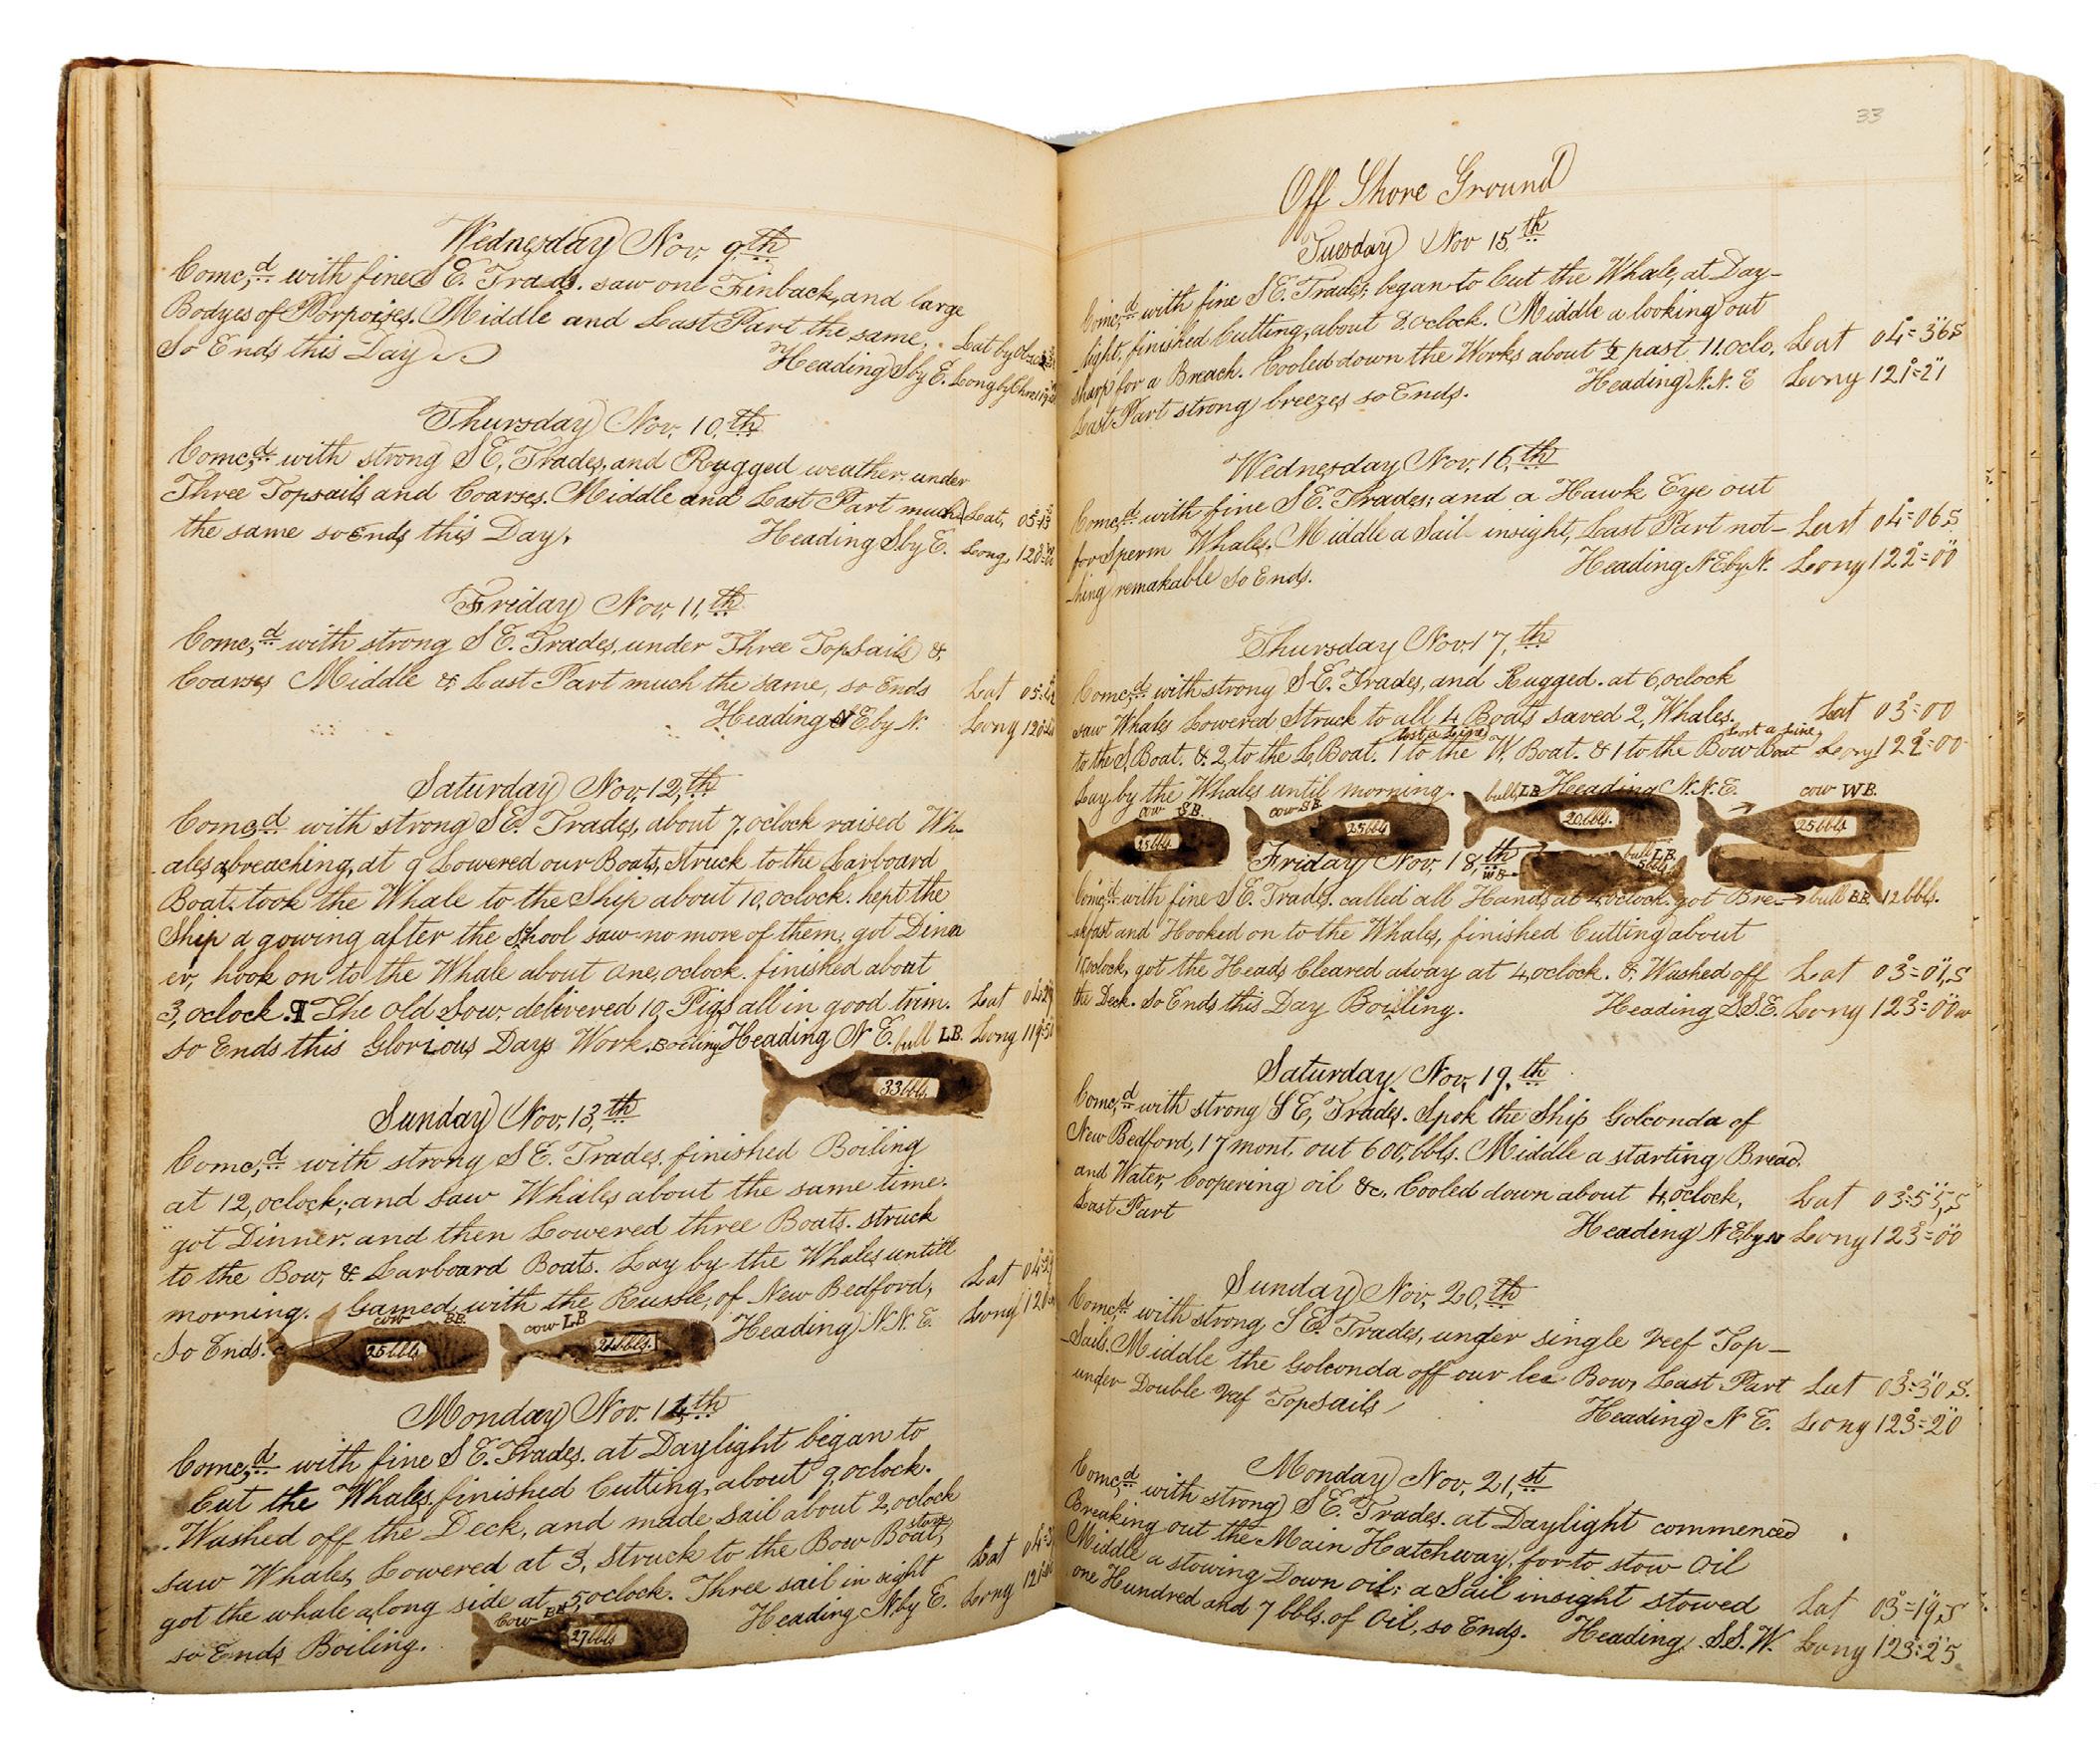 Wednesday Nov. 9,th
Comc,d with fine S E. Trads. saw one Finback, and large
Bodyes of Porpoises. Middle and Last Part the same. Lat by
So Ends this Day Heading S by E. Long by Chro
Thursday Nov. 10,th
Comc,d with strong S E, Trades, and Rugged weather. under
Three Topsails and Coarses. Middle and Last Part much Lat,
the same so Ends this Day. Heading S by E. Long,
Friday Nov. 11,th
Comc,d with strong S E. Trades, under Three Topsails &
Coarses Middle & Last Part much the same, so Ends Lat
Heading N E by N. Long
Saturday Nov. 12,th
Comc,d with strong S E. Trades, about 7, oclock raised Wh-
-ales abreaching, at 9 Lowered our Boats, Struck to the Larboard
Boat. took the Whale to the Ship about 10, oclock. kept the
Ship a gowing after the skool saw no more of them, got Dinn
er, hook on to the Whale about one, oclock. finished about
3, oclock. The old Sow delevered 10, Pigs all in good trim. Lat
so Ends this Glorious Days Work. Boiling Heading N E. bull LB. Long
33 bbls
Sunday Nov. 13,th
Comc,d with strong S E. Trades. finished Boiling
at 12, oclock; and saw Whales about the same time.
got Dinner. and then Lowered three Boats. struck
to the Bow, & Larboard Boats. Lay by the Whales untill Lat
morning. Gamed with the Russle, of New Bedford, Long
So Ends. cow BB. 25 bbls cow LB 24 bbls. Heading N. N. E.
Monday Nov. 14,th
Comc,d with fine S E. Trades. at Daylight began to
Cut the Whales, finished Cutting, about 9, oclock.
Washed off the Deck, and made sail about 2, oclock
saw Whales, Lowered at 3, Struck to the Bow Boat, stove Lat
got the whale along side at 5, oclock. Three sail in sight Long
so Ends Boiling. Cow BB 27 bbls Heading N. by E.
33
Off Shore Ground
Tuesday Nov 15,th
Comc,d with fine S E. Trades; began to Cut the Whale, at Day-
-light, finished Cutting, about 8, oclock. Middle a looking out
sharp for a Breach. Cooled down the Works about ½ past 11. oclo. Lat 04°=36 S
Last Part strong breezes so Ends. Heading N. N. E Long 121°=21
Wednesday Nov. 16,th
Comc,d with fine S E. Trades; and a Hawk Eye out
for Sperm Whales. Middle a Sail insight, Last Part not- Lat 04°=06 S
-hing remakable so Ends. Heading N E by N. Long 122°=00
Thursday Nov. 17,th
Comc,d with strong S E. Trades, and Rugged. at 6, oclock
saw Whales Lowered Struck to all 4 Boats saved 2, Whales. Lat 03°=00
to the S, Boat. & 2, to the L, Boat. 1 to the W, Boat. lost a Line & 1 to the Bow Boat Lost a Line, Long 122°=00
Lay by the Whales until morning. Heading N. N. E.
cow SB. 25 bbls cow SB. 25 bbls bull LB 20 bbls. cow WB. 25 bbls
Friday Nov. 18,th WB bull LB.
Comc,d with fine S E. Trads. called all Hands at 4, oclock. got Bre- bull BB. 12 bbls.
-akfast and Hooked on to the Whales, finished Cutting about
oclock, got the Heads Cleared away at 4, oclock. & Washed off Lat 03°=01, S
the Deck. So Ends this Day Boiling. Heading S. S. E. Long 123°=00 w
Saturday Nov. 19,th
Comc,d with strong S E, Trades. Spok the Ship Golconda of
New Bedford, 17 mont. out 600, bbls. Middle a starting Bread
and Water, Coopering oil &c. Cooled down about 4, oclock, Lat 03°=55, S
Last Part Heading N E by N Long 123°=00
Sunday Nov. 20,th
Comc,d with strong S E. Trades, under single reef Top-
-Sails. Middle the Golconda off our lee Bow, Last Part Lat 03°=30 S.
under Double reef Topsails, Heading N E. Long 123°=20
Monday Nov. 21,st
Comc,d with strong S E. Trades. at Daylight commenced
Breaking out the Main Hatchway, for to stow Oil
Middle a stowing Down oil; a Sail insight stowed Lat 03°=19, S
one Hundred and 7 bbls. of Oil, so Ends. Heading. S. S. W. Long 123°=25